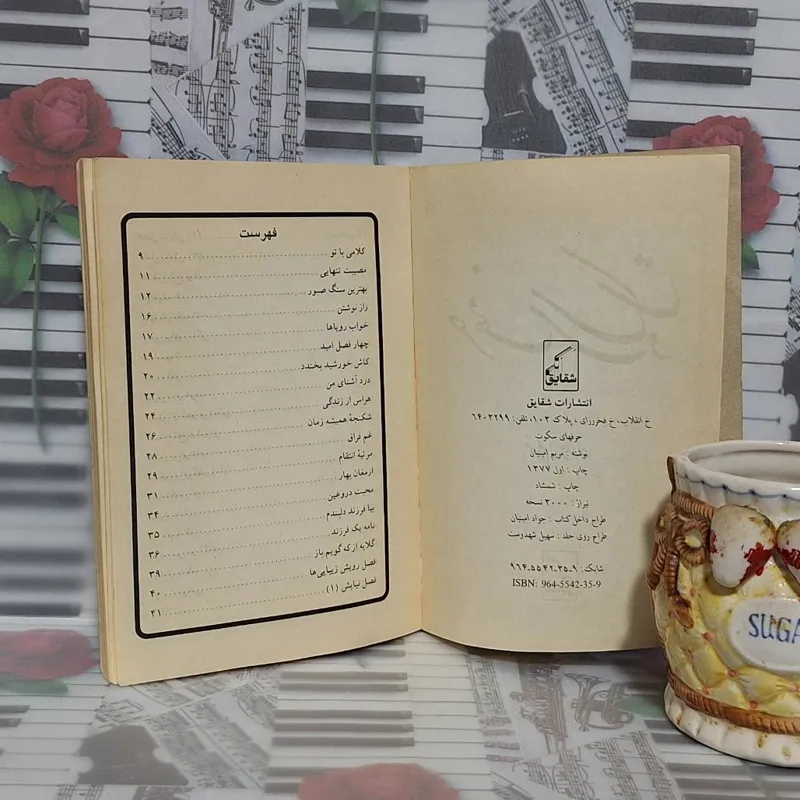 شقایق
انتشارات شقایق
خ انقلاب، خ فخررازی، پلاک ۱۰۳، تلفن: ۶۴۰۳۲۹۹
حرفهای سکوت
نوشته : مریم امینیان
چاپ : اول ۱۳۷۷
چاپ : شمشاد
تیراژ : ۳۰۰۰ نسخه
طراح داخل کتاب : جواد امینیان
طراح روی جلد : سهیل شهدوست
شابک : ۹-۳۵-۵۵۴۲-۹۶۴
ISBN: 964-5542-35-9
فهرست
کلامی با تو ۹
مصیبت تنهایی ۱۱
بهترین سنگ صبور ۱۲
راز نوشتن ۱۶
خواب رویاها ۱۷
چهار فصل امید ۱۹
کاش خورشید بخندد ۲۰
درد آشنای من ۲۲
هراس از زندگی ۲۴
شکنجهٔ همیشه زمان ۲۶
غم فراق ۲۸
مرثیهٔ انتقام ۲۹
ارمغان بهار ۳۱
محبت دروغین ۳۴
بیا فرزند دلبندم ۳۵
نامه یک فرزند ۳۶
گلایه از که گویم باز ۳۹
فصل رویش زیبایی‌ها ۴۰
فصل نیایش (۱) ۴۱